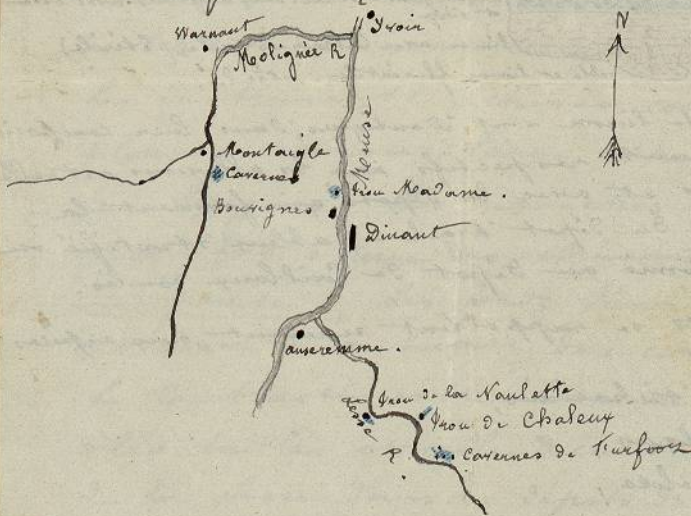 N
Warnant
Yvoir
Molignée R
Meuse
Montaigle
Cavernes
trou Madame.
Bouvignes
Dinant
anseremme.
Lesse
R.
Trou de la Naulette
Trou de Chaleux
Cavernes de Furfooz